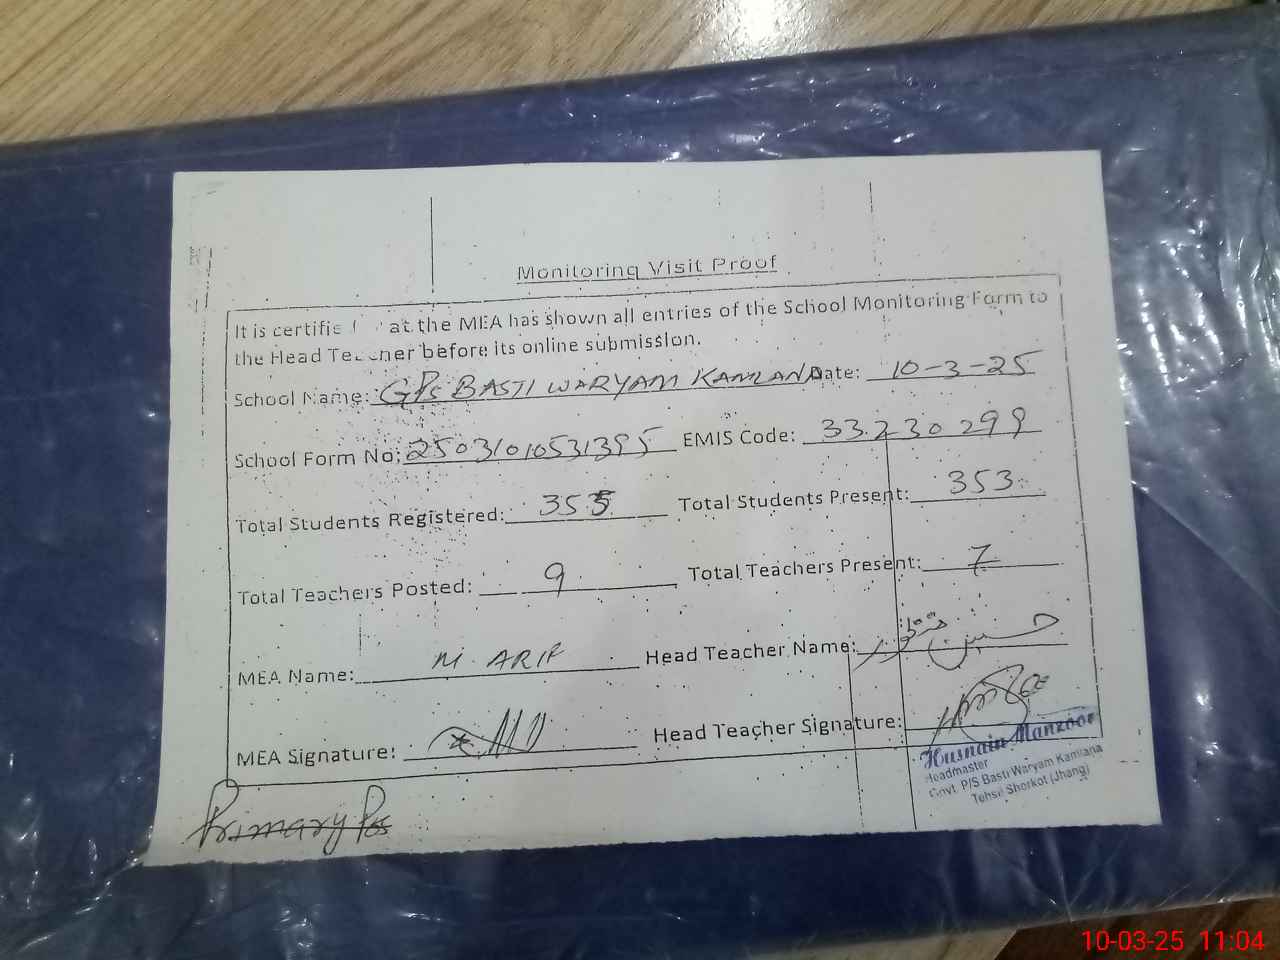 Monitoring Visit Proof
It is certifie at the MEA has shown all entries of the School Monitoring Form to
the Head Teacher before its online submission.
School Name: GPS BASTI WARYAM KAMLANA Date: 10-3-25
School Form No: 25031010531395 EMIS Code: 33230299
Total Students Registered: 355 Total Students Present: 353
Total Teachers Posted: 9 Total Teachers Present: 7
MEA Name: M. ARIF Head Teacher Name: حسنین منظور
MEA Signature: Head Teacher Signature:
Husnain Manzoor
Headmaster
Govt. P/S Basti Waryam Kamlana
Tehsil Shorkot (Jhang)
Primary Pos
10-03-25 11:04